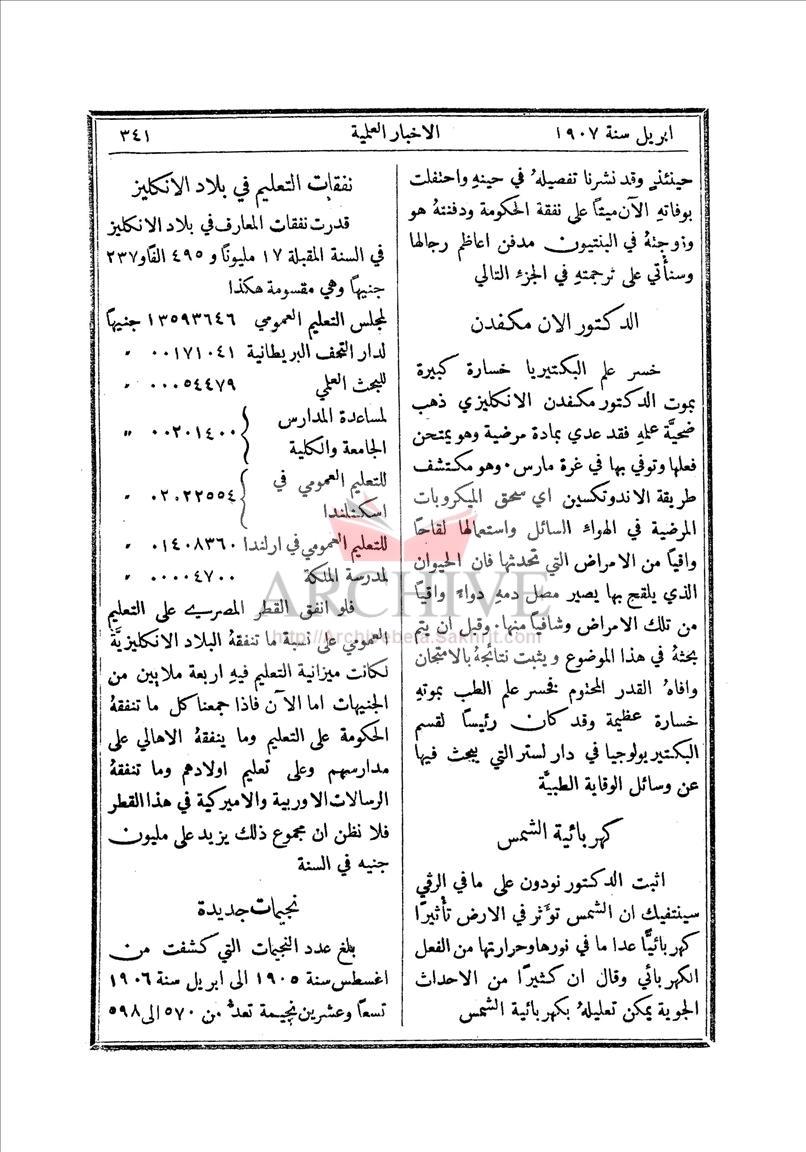 ابريل سنة ١٩٠٧
الاخبار العلمية
٣٤١
حينئذٍ وقد نشرنا تفصيلهُ في حينهِ واحتفلت
بوفاتهِ الآن ميتاً على نفقة الحكومة ودفنتهُ هو
وزوجتهُ في البنتيون مدفن اعاظم رجالها
وسنأتي على ترجمتهِ في الجزء التالي
الدكتور الان مكفدن
خسر علم البكتيريا خسارة كبيرة
بموت الدكتور مكفدن الانكليزي ذهب
ضحيَّة علمهِ فقد عدي بمادة مرضية وهو يمتحن
فعلها وتوفي بها في غرة مارس . وهو مكتشف
طريقة الاندوتكسين اي سحق الميكروبات
المرضية في الهواء السائل واستعمالها لقاحًا
واقياً من الامراض التي تحدثها فان الحيوان
الذي يلقح بها يصير مصل دمهِ دواءً واقياً
من تلك الامراض وشافياً منها . وقبل ان يتم
بحثهُ في هذا الموضوع ويثبت نتائجهُ بالامتحان
وافاهُ القدر المحتوم فخسر علم الطب بموتهِ
خسارة عظيمة وقد كان رئيسًا لقسم
البكتيريولوجيا في دار لستر التي يبحث فيها
عن وسائل الوقاية الطبيَّة
كهربائية الشمس
اثبت الدكتور نودون على ما في الرڤي
سينتفيك ان الشمس تؤَثر في الارض تأثيرًا
كهربائيًّا عدا ما في نورها وحرارتها من الفعل
الكهربائي وقال ان كثيرًا من الاحداث
الجوية يمكن تعليلهُ بكهربائية الشمس
نفقات التعليم في بلاد الانكليز
قدرت نفقات المعارف في بلاد الانكليز
في السنة المقبلة ١٧ مليونًا و ٤٩٥ الفًا و ٢٣٧
جنيهاً وهي مقسومة هكذا
لمجلس التعليم العمومي ١٣٥٩٣٦٤٦ جنيهاً
لدار التحف البريطانية ٠٠١٧١٠٤١ "
للبحث العلمي ٠٠٠٥٤٤٧٩ "
لمساعدة المدارس
الجامعة والكلية } ٠٠٢٠١٤٠٠ "
للتعليم العمومي في
اسكتلندا } ٠٢٠٢٢٥٥٤ "
للتعليم العمومي في ارلندا ٠١٤٠٨٣٦٠ "
لمدرسة الملكة ٠٠٠٠٤٧٠٠ "
فلو انفق القطر المصري على التعليم
العمومي على نسبة ما تنفقهُ البلاد الانكليزيَّة
لكانت ميزانية التعليم فيهِ اربعة ملايين من
الجنيهات اما الآن فاذا جمعنا كل ما تنفقهُ
الحكومة على التعليم وما ينفقهُ الاهالي على
مدارسهم وعلى تعليم اولادهم وما تنفقهُ
الرسالات الاوربية والاميركية في هذا القطر
فلا نظن ان مجموع ذلك يزيد على مليون
جنيه في السنة
نجيمات جديدة
بلغ عدد النجيمات التي كشفت من
اغسطس سنة ١٩٠٥ الى ابريل سنة ١٩٠٦
تسعاً وعشرين نجيمة تعدُّ من ٥٧٠ الى ٥٩٨
ARCHIVE
http://Archivebeta.Sakhrit.com